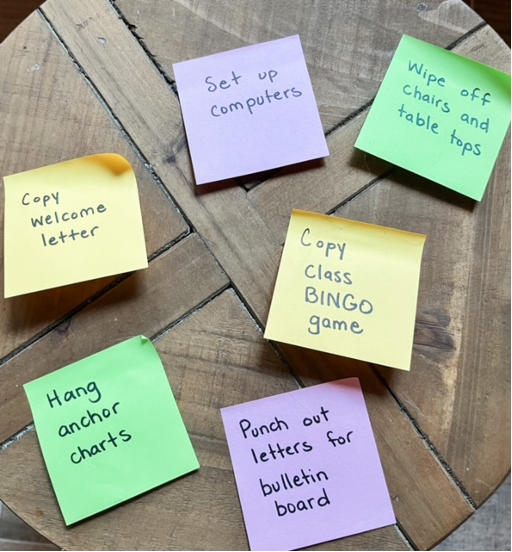 Set up
computers
Wipe off
chairs and
table tops
Copy
welcome
letter
Copy
class
BINGO
game
Hang
anchor
charts
Punch out
letters for
bulletin
board